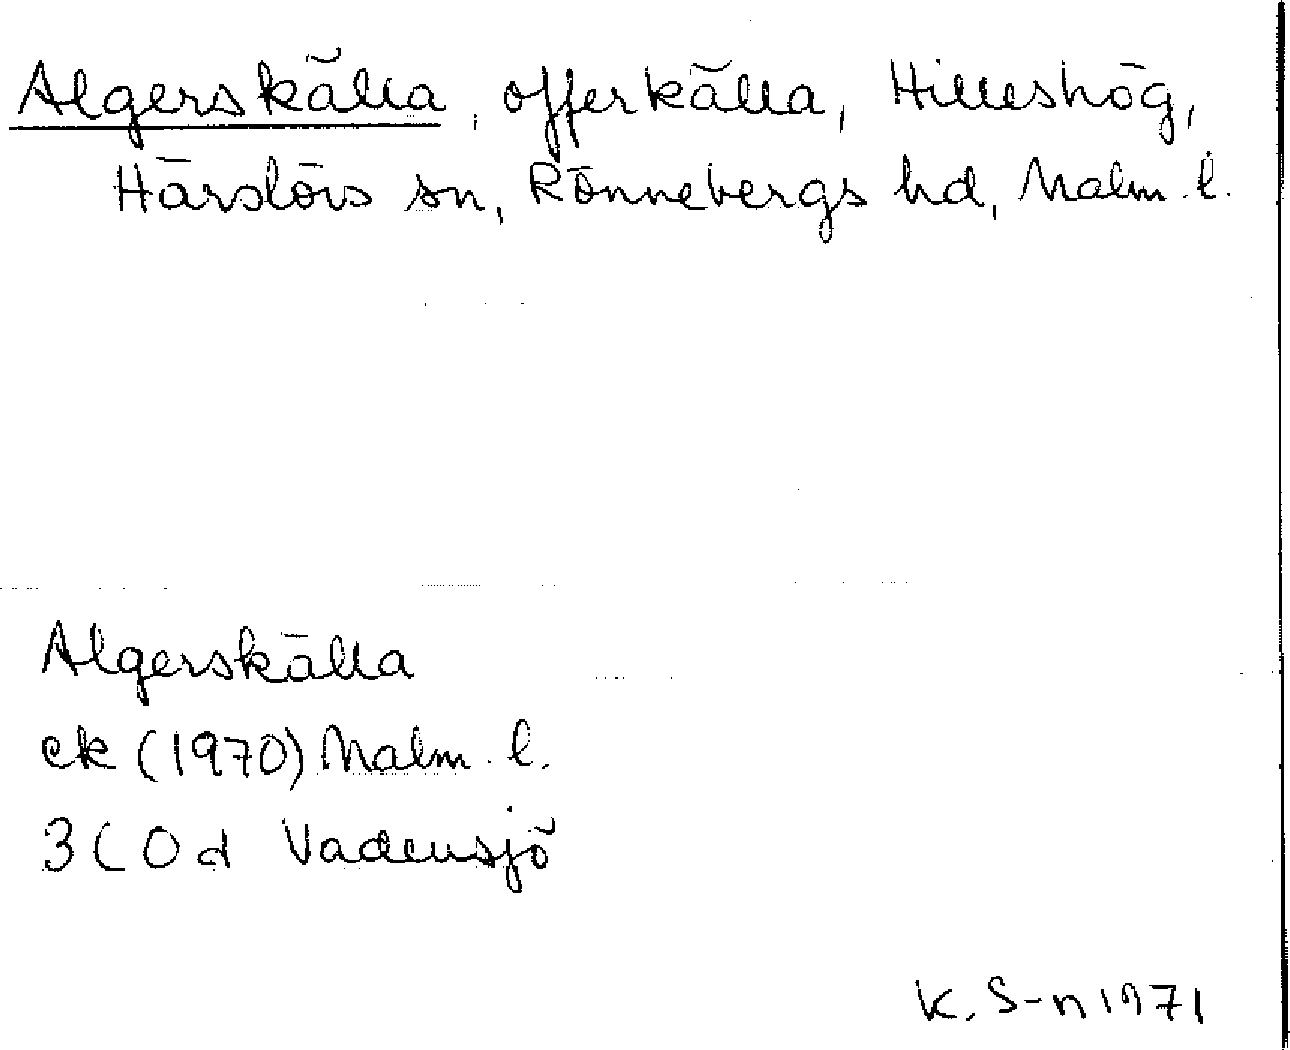 Algerskälla, offerkälla, Hilleshög,
Härslövs sn, Rönnebergs hd, Malm. l.
Algerskälla
ek (1970) Malm. l.
3 C 0 d Vadensjö
K. S-n 1971